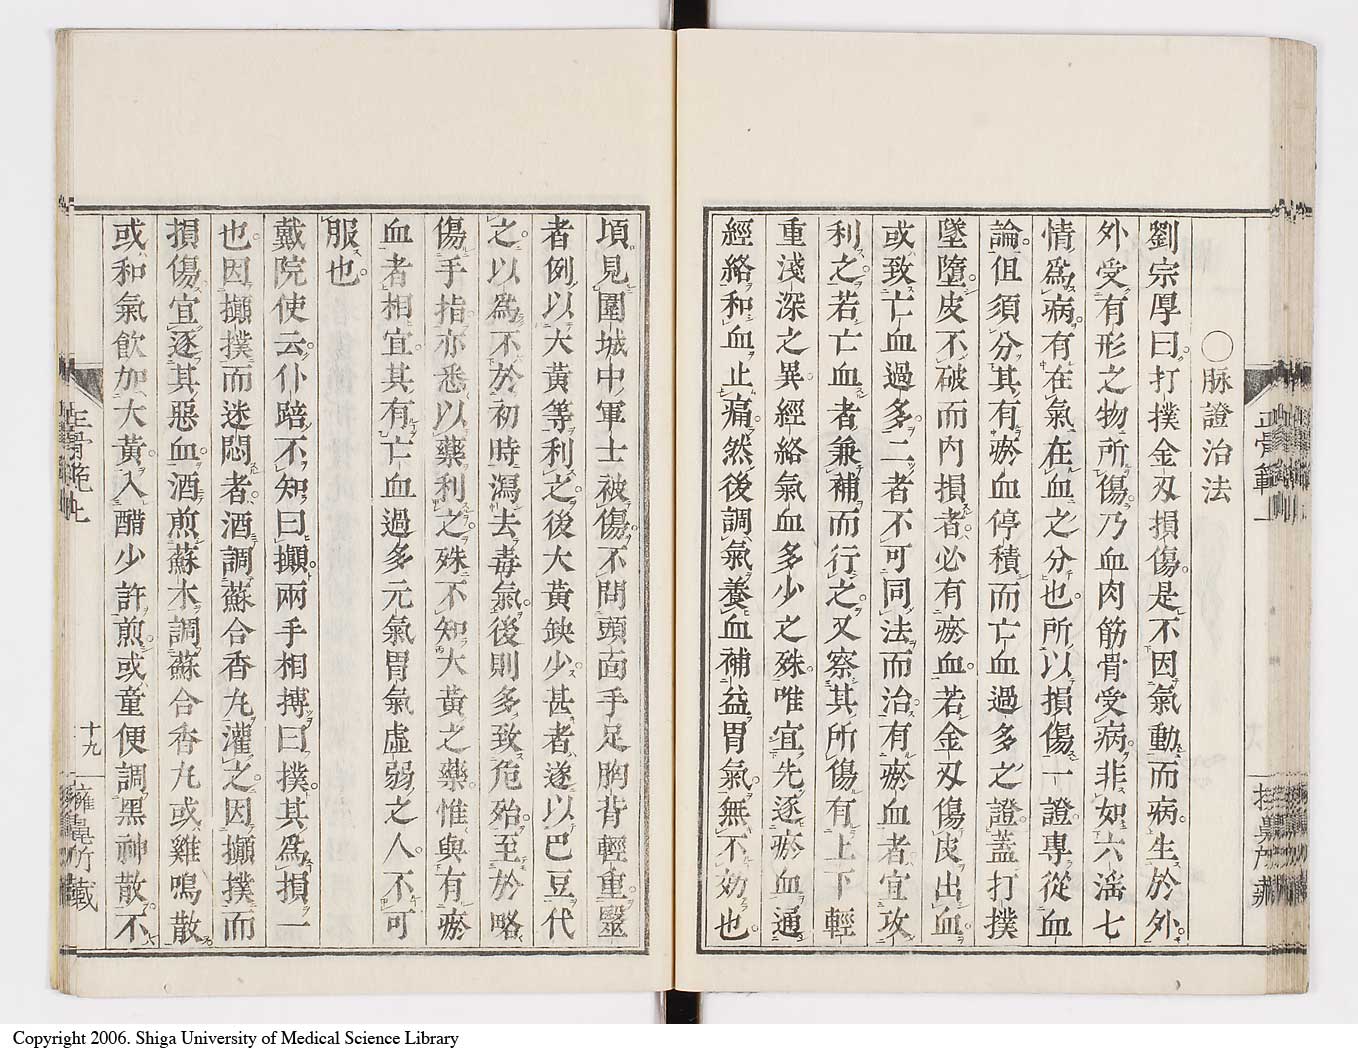 〇脉證治法
劉宗厚曰打撲金刄損傷是不因氣動而病生於外
外受有形之物所傷乃血肉筋骨受病非如六滛七
情爲病有在氣在血之分也所以損傷一證專從血
論但須分其有瘀血停積而亡血過多之證蓋打撲
墜墮皮不破而内損者必有瘀血若金刄傷皮出血
或致亡血過多二者不可同法而治有瘀血者宜攻
利之若亡血者兼補而行之又察其所傷有上下輕
重淺深之異經絡氣血多少之殊唯宜先逐瘀血通
經絡和血止痛然後調氣養血補益胃氣無不効也
頃見圍城中軍士被傷不問頭面手足胸背輕重毉
者例以大黃等利之後大黃缺少甚者遂以巴豆代
之以爲不於初時瀉去毒氣後則多致危殆至於略
傷手指亦悉以藥利之殊不知大黃之藥惟與有瘀
血者相宜其有亡血過多元氣胃氣虛弱之人不可
服也
戴院使云仆踣不知曰攧兩手相搏曰撲其爲損一
也因攧撲而迷悶者酒調蘇合香丸灌之因攧撲而
損傷宜逐其惡血酒煎蘇木調蘇合香丸或雞鳴散
或和氣飲加大黃入醋少許煎或童便調黑神散不
十九